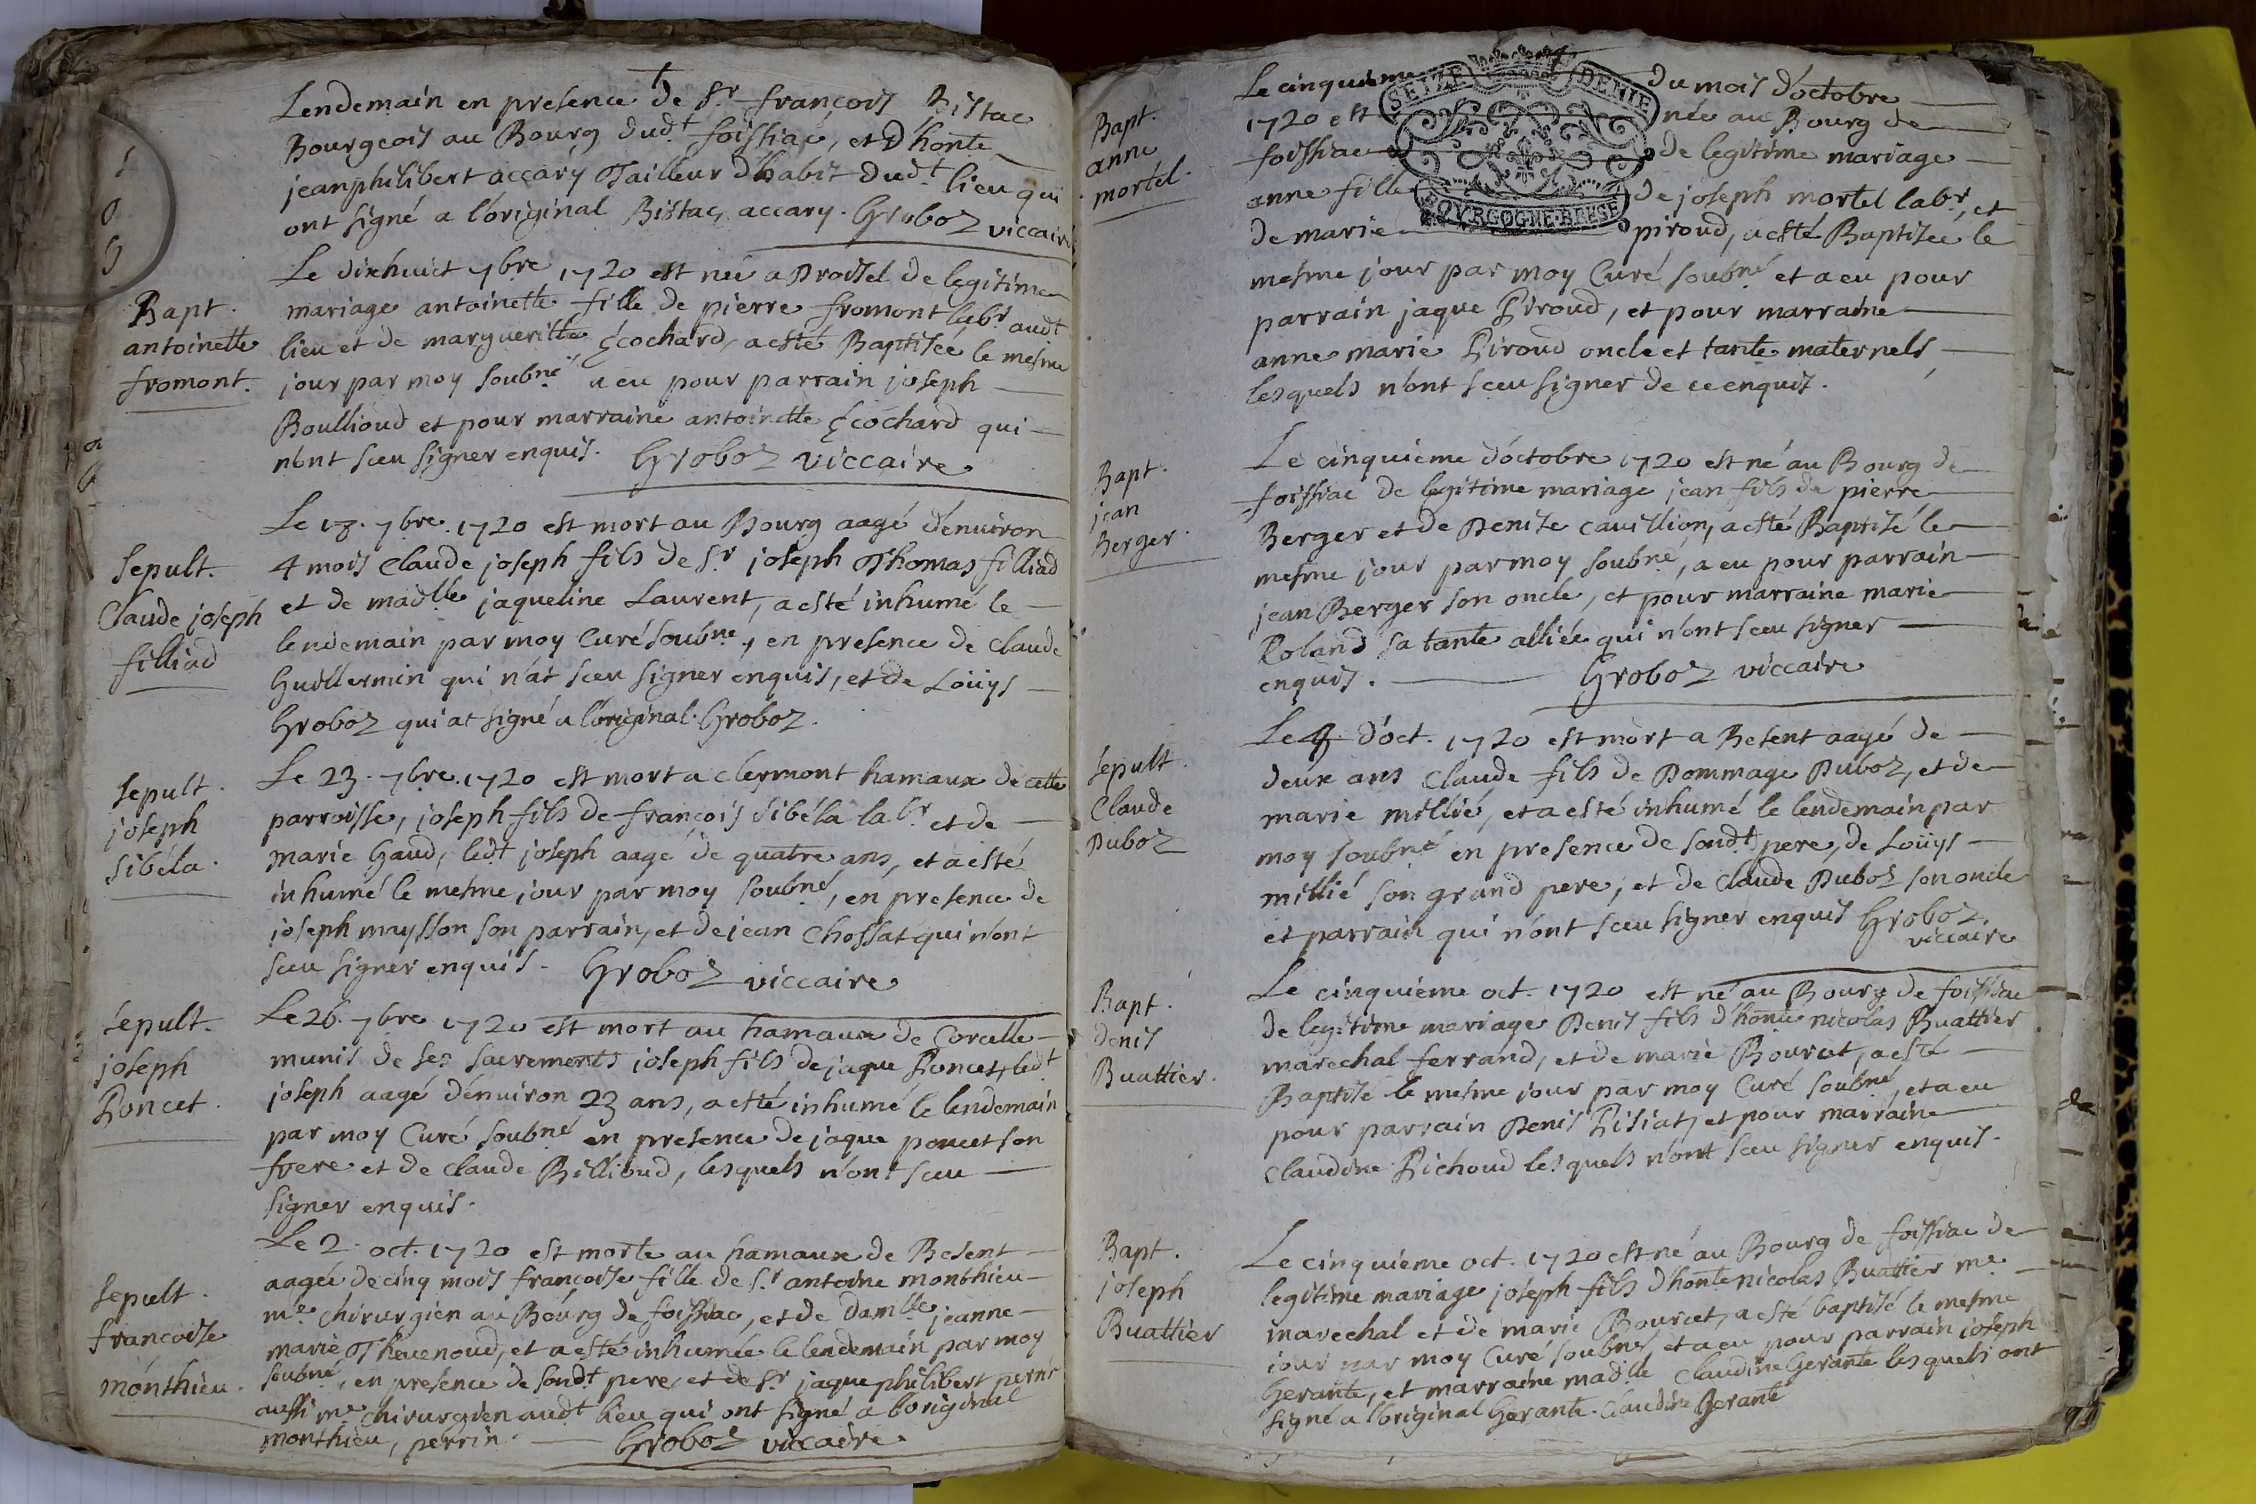 Lendemain en presence de Sr françois Bistac
Bourgeois au Bourg dudt foissiac, et d'honte
jeanphilibert accary Tailleur d'habit dudt lieu qui
ont signé a l'original Bistac, accary. Groboz viccaire
Bapt.
antoinette
fromont.
Le dixhuict 7bre 1720 est née a Droisel de legitime
mariage antoinette fille de pierre fromont labr audt
lieu et de margueritte Ecochard, a esté Baptisée le mesme
jour par moy soubné a eu pour parrain joseph
Boullioud et pour marraine antoinette Ecochard qui
n'ont sceu signer enquis. Groboz viccaire
Sepult.
Claude joseph
filliad
Le 18. 7bre. 1720 est mort au Bourg aagé d'environ
4 mois Claude joseph fils de Sr. joseph Thomas filliad
et de madlle jaqueline Laurent, a esté inhumé le
lendemain par moy Curé soubné, en presence de Claude
Guillermin qui n'at sceu signer enquis, et de Loüys
Groboz qui at signé a l'original. Groboz.
Sepult.
joseph
Sibéla.
Le 23. 7bre. 1720 est mort a clermont hamaux de cette
parroisse, joseph fils de françois Sibéla labr et de
marie Gaud, ledt joseph aagé de quatre ans, et a esté
inhumé le mesme jour par moy soubné, en presence de
joseph maysson son parrain, et de jean Chossat qui n'ont
sceu signer enquis. Groboz viccaire
Sepult.
joseph
Poncet.
Le 26. 7bre 1720 est mort au hamaux de Corcelle
munis de ses sacrements joseph fils de jaque Poncet, ledt
joseph aagé d'environ 23 ans, a esté inhumé le lendemain
par moy Curé soubné en presence de jaque poncet son
frere et de Claude Billioud, lesquels n'ont sceu
signer enquis.
Sepult.
françoise
monthieu.
Le 2. oct. 1720 est morte au hamaux de Besent
aagée de cinq mois françoise fille de Sr antoine monthieu
me chirurgien au Bourg de foissiac, et de damlle jeanne
marie Thevenoud, et a esté inhumée le lendemain par moy
soubné, en presence de sondt pere, et de Sr jaque philibert perrin
aussi me chirurgien audt lieu qui ont signé a l'original
monthieu, perrin. Groboz viccaire.
SEIZE DENIE
BOURGOGNE·BRESSE
Bapt.
anne
mortel.
Le cinquieme du mois d'octobre
1720 est née au Bourg de
foissiac de legitime mariage
anne fille de joseph mortel labr, et
de marie piroud, a esté Baptisée le
mesme jour par moy Curé soubné et a eu pour
parrain jaque Piroud, et pour marraine
anne marie Piroud oncle et tante maternels,
lesquels n'ont sceu signer de ce enquis.
Bapt.
jean
Berger.
Le cinquieme d'octobre 1720 est né au Bourg de
foissiac de legitime mariage jean fils de pierre
Berger et de Denise cavillion, a esté Baptisé le
mesme jour par moy soubné, a eu pour parrain
jean Berger son oncle, et pour marraine marie
Roland sa tante alliée qui n'ont sceu signer
enquis. Groboz viccaire
Sépult.
Claude
Duboz
Le d'oct. 1720 est mort a Besent aagé de
deux ans Claude fils de Dommage Duboz, et de
marie millié, et a esté inhumé le lendemain par
moy soubné en presence de sondt pere, de Loüys
millié son grand pere, et de Claude Duboz son oncle
et parrain qui n'ont sceu signer enquis Groboz.
viccaire
Bapt.
denis
Buattier.
Le cinquieme oct. 1720 est né au Bourg de foissiac
de legitime mariage Denis fils d'honte nicolas Buattier
marechal ferrand, et de marie Bourcet, a esté
Baptisé le mesme jour par moy Curé soubné, et a eu
pour parrain Denis Pisiat, et pour marraine
Claudine Pichoud lesquels n'ont sceu signer enquis.
Bapt.
joseph
Buattier
Le cinquieme oct. 1720 est né au Bourg de foissiac de
legitime mariage joseph fils d'honte nicolas Buattier me
marechal et de marie Bourcet, a esté baptisé le mesme
jour par moy Curé soubné, et a eu pour parrain joseph
Gerante, et marraine madlle Claudine Gerante lesquels ont
signé a l'original Gerante. Claudine Gerante